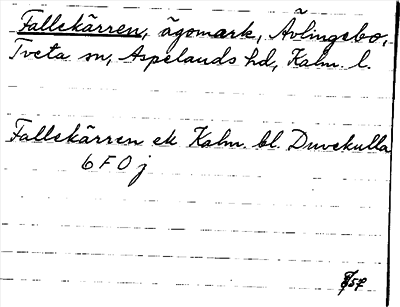 Fallekärren, ägomark, Älvingebo,
Tveta sn, Aspelands hd, Kalm. l.
Fallekärren ek Kalm. bl. Duvekulla
6 F 0 j